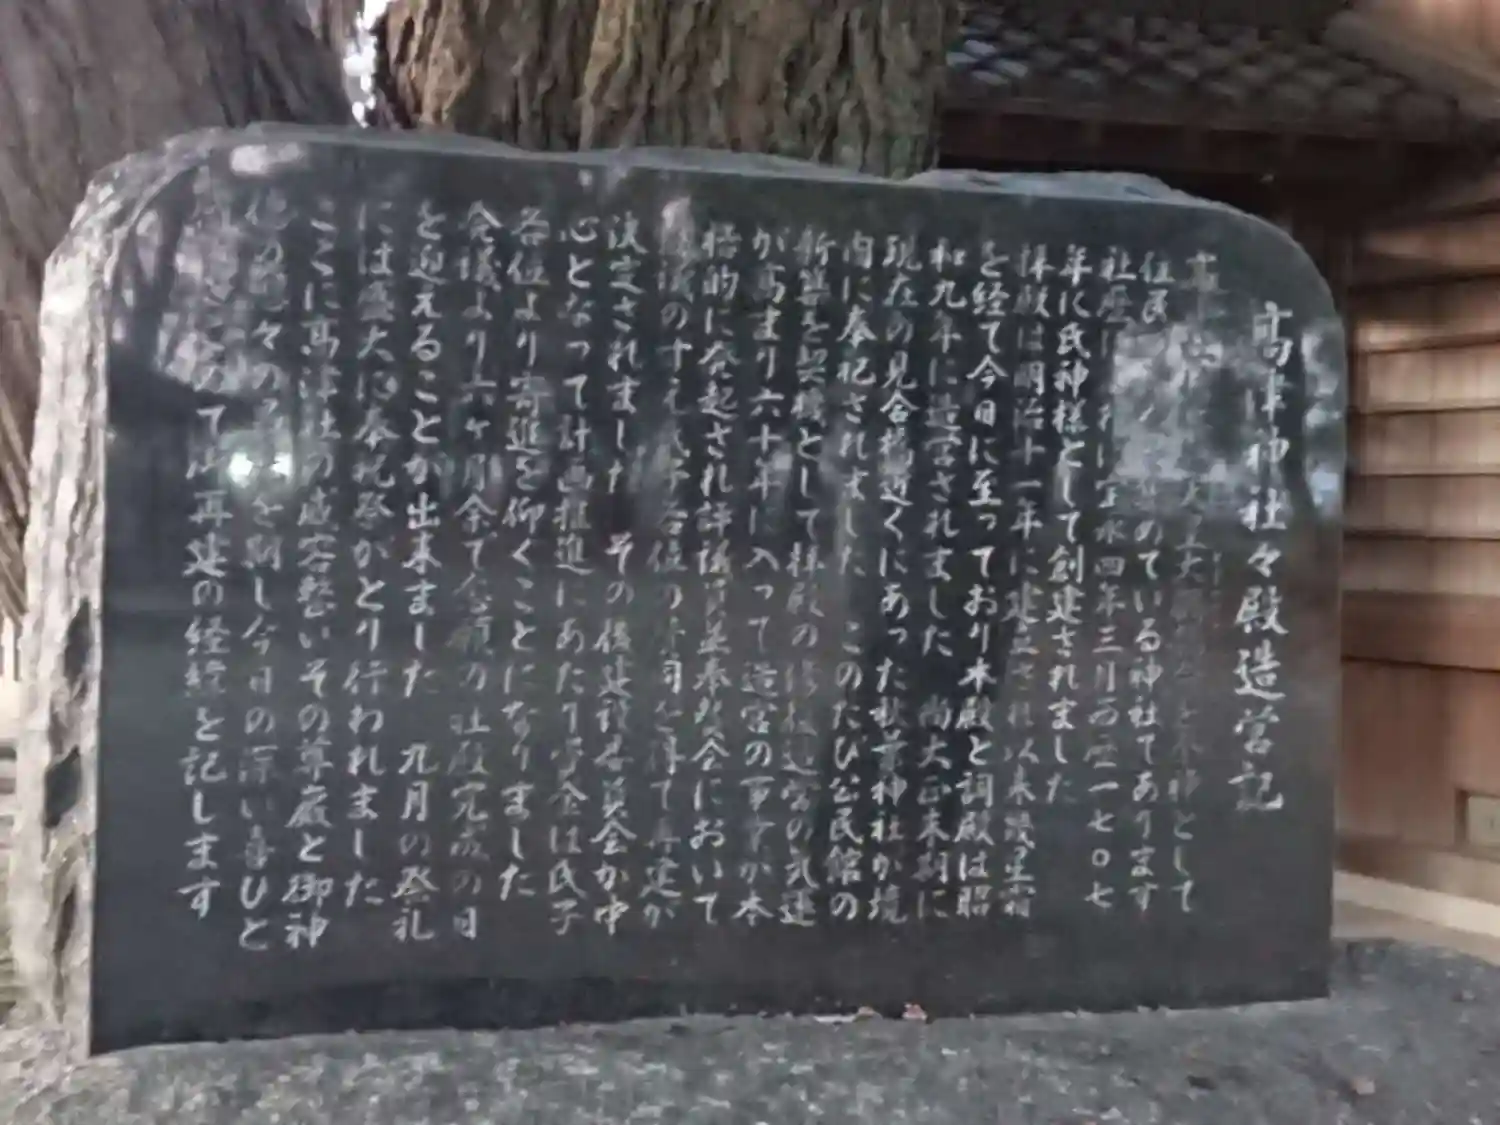 高津神社々殿造営記
大 を本神として
住民 めている神社であります
社歴 宝永四年三月西歴一七〇七
年に氏神様として創建されました
拝殿は明治十一年に建立され以来幾星霜
を経て今日に至っており本殿と詞殿は昭
和九年に造宮されました 尚大正末期に
現在の見合橋近くにあった秋葉神社が境
内に奉祀されました このたび公民館の
新築を契機として拝殿の 造宮の気運
が高まり六十年に入って造宮の事業が本
格的に発起され評議員並奉賛会において
議の十え氏子各位の 同を得て再建が
決定されました その後建設委員会が中
心となって計画推進にあたり資金は氏子
各位より寄進を仰ぐことになりました
発議より六ヶ月余で念願の社殿完成の日
を迎えることが出来ました 九月の祭礼
には盛大に奉祝祭がとり行われました
ここに高津社の威容整いその尊厳と御神
徳の 々の を期し今日の深い喜びと
て 再建の経緯を記します